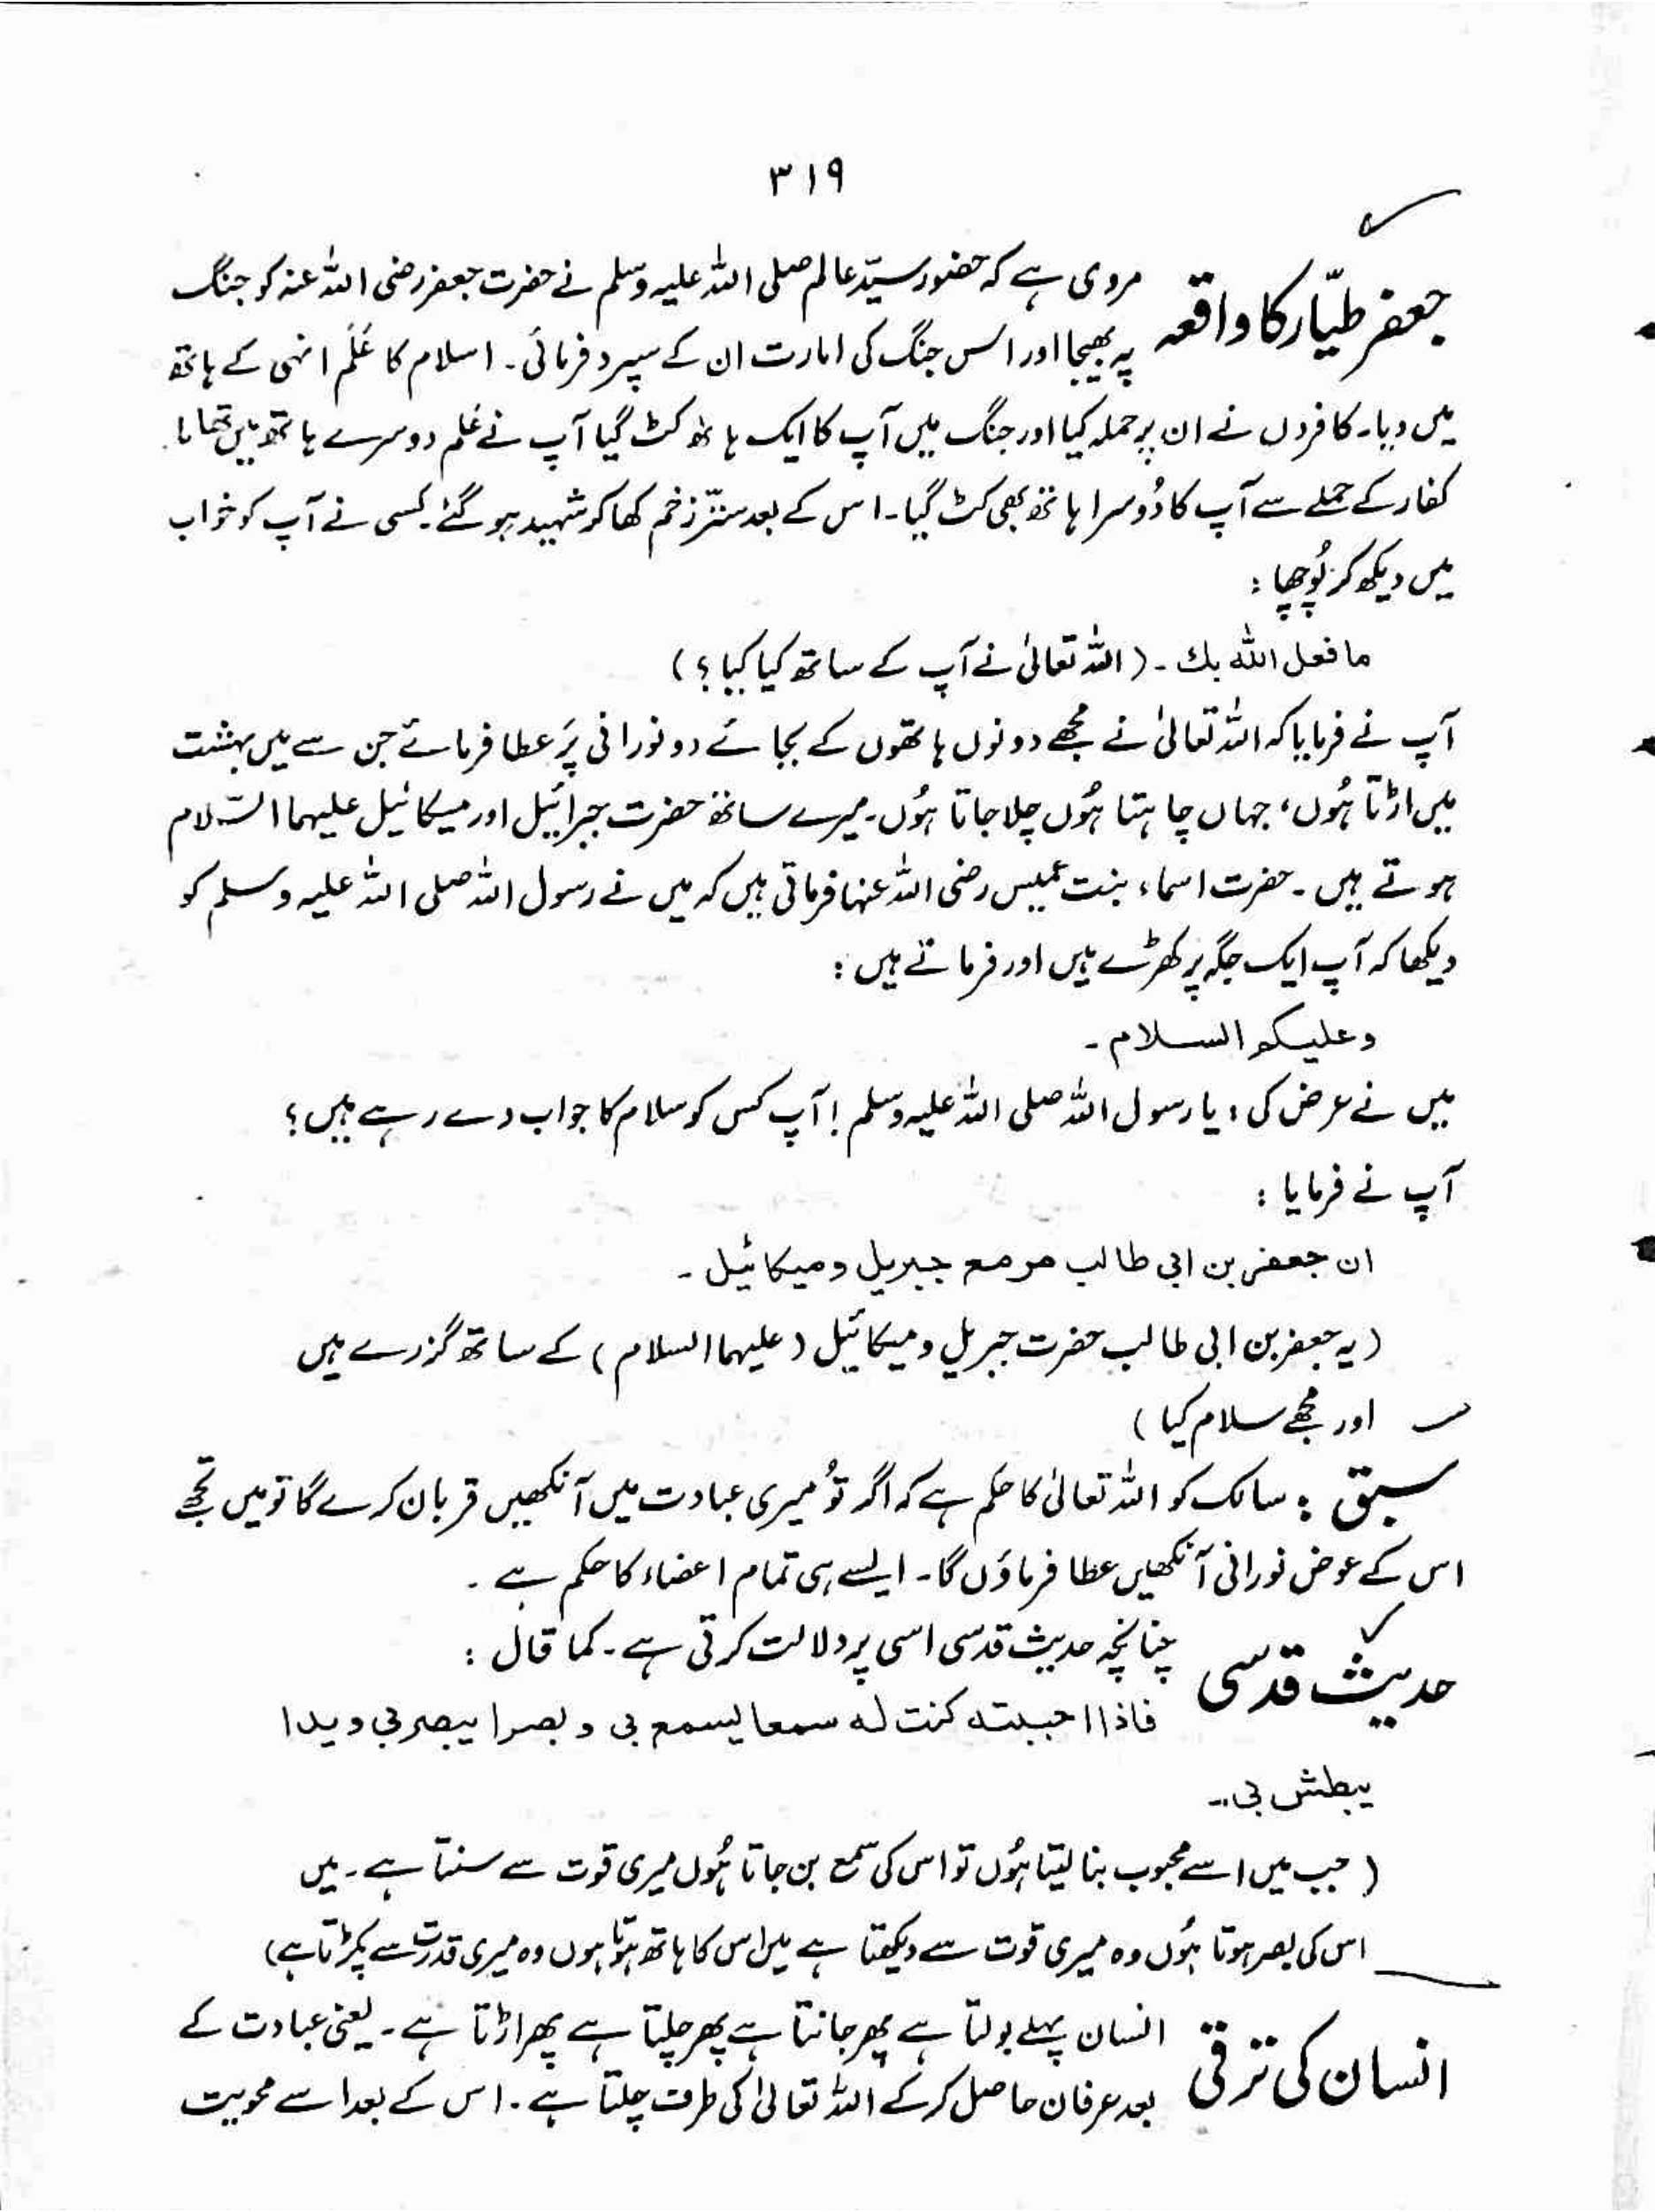 ۳۱۹
جعفر طیّار کا واقعہ
مروی ہے کہ حضور سیّد عالم صلی اللہ علیہ وسلم نے حضرت جعفر رضی اللہ عنہ کو جنگ
پہ بھیجا اور اس جنگ کی امارت ان کے سپرد فرمائی۔ اسلام کا عَلَم انہی کے ہاتھ
میں دیا۔ کافروں نے ان پر حملہ کیا اور جنگ میں آپ کا ایک ہاتھ کٹ گیا آپ نے عَلم دوسرے ہاتھ میں تھاما۔
کفار کے حملے سے آپ کا دُوسرا ہاتھ بھی کٹ گیا۔ اس کے بعد ستّر زخم کھا کر شہید ہو گئے۔ کسی نے آپ کو خواب
میں دیکھ کر پُوچھا :
ما فعل اللہ بك ۔ (اللہ تعالیٰ نے آپ کے ساتھ کیا کیا ؟)
آپ نے فرمایا کہ اللہ تعالیٰ نے مجھے دونوں ہاتھوں کے بجائے دو نورانی پَر عطا فرمائے جن سے میں بہشت
میں اڑتا ہُوں، جہاں چاہتا ہُوں چلا جاتا ہُوں۔ میرے ساتھ حضرت جبرائیل اور میکائیل علیہما السّلام
ہوتے ہیں ۔ حضرت اسماء بنت عمیس رضی اللہ عنہا فرماتی ہیں کہ میں نے رسول اللہ صلی اللہ علیہ وسلم کو
دیکھا کہ آپ ایک جگہ پر کھڑے ہیں اور فرماتے ہیں :
وعلیکم السلام ۔
میں نے عرض کی : یا رسول اللہ صلی اللہ علیہ وسلم ! آپ کس کو سلام کا جواب دے رہے ہیں ؟
آپ نے فرمایا :
ان جعفر بن ابی طالب مر مع جبریل و میکائیل ۔
(یہ جعفر بن ابی طالب حضرت جبریل و میکائیل (علیہما السلام) کے ساتھ گزرے ہیں
اور مجھے سلام کیا )
سبق : سالک کو اللہ تعالیٰ کا حکم ہے کہ اگر تُو میری عبادت میں آنکھیں قربان کرے گا تو میں تجھے
اس کے عوض نورانی آنکھیں عطا فرماؤں گا۔ ایسے ہی تمام اعضاء کا حکم ہے ۔
حدیث قدسی
چنانچہ حدیث قدسی اسی پر دلالت کرتی ہے۔ کما قال :
فاذا احببته کنت له سمعا یسمع بی و بصرا یبصر بی و یدا
یبطش بی ۔
( جب میں اسے محبوب بنا لیتا ہُوں تو اس کی سمع بن جاتا ہُوں میری قوت سے سنتا ہے۔ میں
اس کی بصر ہوتا ہُوں وہ میری قوت سے دیکھتا ہے میں اس کا ہاتھ ہوتا ہوں وہ میری قدرت سے پکڑتا ہے)
انسان کی ترقی
انسان پہلے بولتا ہے پھر جانتا ہے پھر چلتا ہے پھر اڑتا ہے۔ یعنی عبادت کے
بعد عرفان حاصل کر کے اللہ تعالیٰ کی طرف چلتا ہے ۔ اس کے بعد اسے محویت